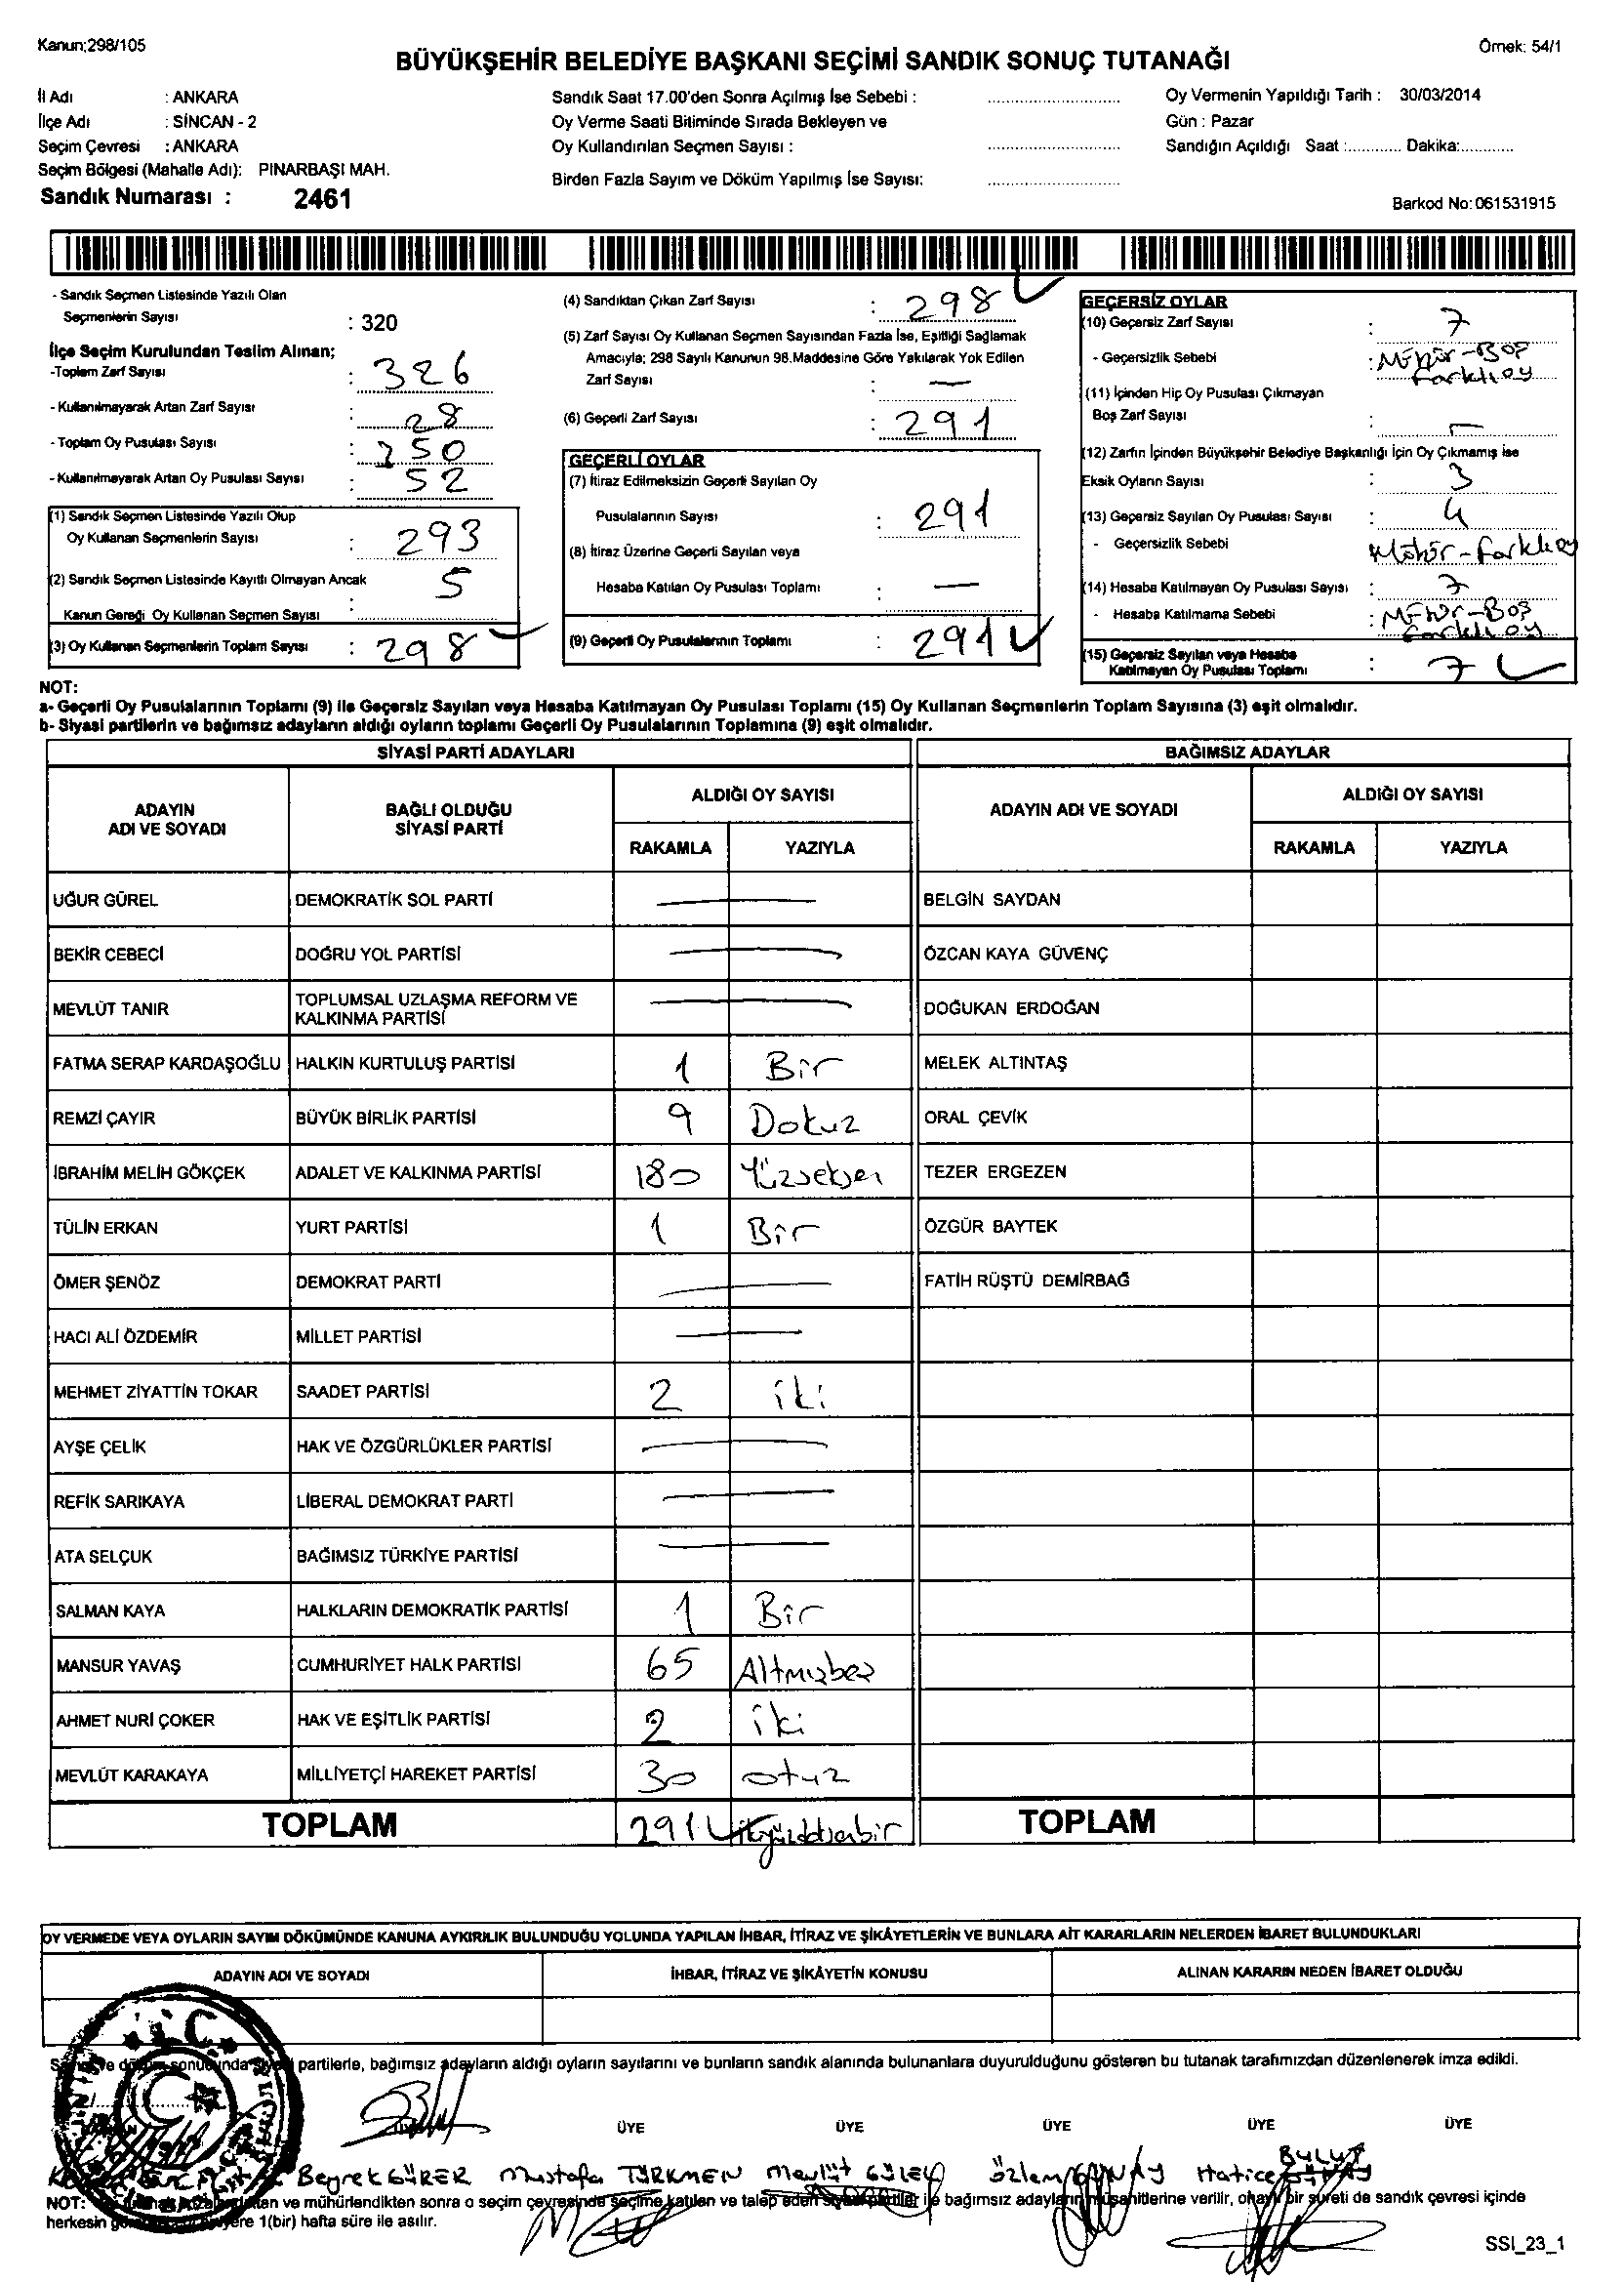 Kanun:298/105
Örnek: 54/1
BÜYÜKŞEHİR BELEDİYE BAŞKANI SEÇİMİ SANDIK SONUÇ TUTANAĞI
İl Adı : ANKARA
İlçe Adı : SİNCAN - 2
Seçim Çevresi : ANKARA
Seçim Bölgesi (Mahalle Adı): PINARBAŞI MAH.
Sandık Numarası : 2461
Sandık Saat 17.00'den Sonra Açılmış İse Sebebi :
Oy Verme Saati Bitiminde Sırada Bekleyen ve
Oy Kullandırılan Seçmen Sayısı :
Birden Fazla Sayım ve Döküm Yapılmış İse Sayısı:
Oy Vermenin Yapıldığı Tarih : 30/03/2014
Gün : Pazar
Sandığın Açıldığı Saat :............ Dakika:............
Barkod No:061531915
- Sandık Seçmen Listesinde Yazılı Olan
Seçmenlerin Sayısı : 320
İlçe Seçim Kurulundan Teslim Alınan;
-Toplam Zarf Sayısı : 326
- Kullanılmayarak Artan Zarf Sayısı : 28
- Toplam Oy Pusulası Sayısı : 350
- Kullanılmayarak Artan Oy Pusulası Sayısı : 52
(1) Sandık Seçmen Listesinde Yazılı Olup
Oy Kullanan Seçmenlerin Sayısı : 293
(2) Sandık Seçmen Listesinde Kayıtlı Olmayan Ancak
Kanun Gereği Oy Kullanan Seçmen Sayısı : 5
(3) Oy Kullanan Seçmenlerin Toplam Sayısı : 298
(4) Sandıktan Çıkan Zarf Sayısı : 298
(5) Zarf Sayısı Oy Kullanan Seçmen Sayısından Fazla İse, Eşitliği Sağlamak
Amacıyla; 298 Sayılı Kanunun 98.Maddesine Göre Yakılarak Yok Edilen
Zarf Sayısı : —
(6) Geçerli Zarf Sayısı : 291
GEÇERLİ OYLAR
(7) İtiraz Edilmeksizin Geçerli Sayılan Oy
Pusulalarının Sayısı : 291
(8) İtiraz Üzerine Geçerli Sayılan veya
Hesaba Katılan Oy Pusulası Toplamı : —
(9) Geçerli Oy Pusulalarının Toplamı : 291
GEÇERSİZ OYLAR
(10) Geçersiz Zarf Sayısı : 7
- Geçersizlik Sebebi : Mühür-Boş
Farklı oy
(11) İçinden Hiç Oy Pusulası Çıkmayan
Boş Zarf Sayısı : —
(12) Zarfın İçinden Büyükşehir Belediye Başkanlığı İçin Oy Çıkmamış İse
Eksik Oyların Sayısı : 3
(13) Geçersiz Sayılan Oy Pusulası Sayısı : 4
- Geçersizlik Sebebi Mühür-Farklı oy
(14) Hesaba Katılmayan Oy Pusulası Sayısı : 7
- Hesaba Katılmama Sebebi : Mühür-Boş
Farklı oy
(15) Geçersiz Sayılan veya Hesaba
Katılmayan Oy Pusulası Toplamı : 7
NOT:
a- Geçerli Oy Pusulalarının Toplamı (9) ile Geçersiz Sayılan veya Hesaba Katılmayan Oy Pusulası Toplamı (15) Oy Kullanan Seçmenlerin Toplam Sayısına (3) eşit olmalıdır.
b- Siyasi partilerin ve bağımsız adayların aldığı oyların toplamı Geçerli Oy Pusulalarının Toplamına (9) eşit olmalıdır.
SİYASİ PARTİ ADAYLARI
BAĞIMSIZ ADAYLAR
ADAYIN ADI VE SOYADI
BAĞLI OLDUĞU SİYASİ PARTİ
ALDIĞI OY SAYISI
RAKAMLA YAZIYLA
ADAYIN ADI VE SOYADI
ALDIĞI OY SAYISI
RAKAMLA YAZIYLA
UĞUR GÜREL DEMOKRATİK SOL PARTİ — BELGİN SAYDAN
BEKİR CEBECİ DOĞRU YOL PARTİSİ — ÖZCAN KAYA GÜVENÇ
MEVLÜT TANIR TOPLUMSAL UZLAŞMA REFORM VE KALKINMA PARTİSİ — DOĞUKAN ERDOĞAN
FATMA SERAP KARDAŞOĞLU HALKIN KURTULUŞ PARTİSİ 1 Bir MELEK ALTINTAŞ
REMZİ ÇAYIR BÜYÜK BİRLİK PARTİSİ 9 Dokuz ORAL ÇEVİK
İBRAHİM MELİH GÖKÇEK ADALET VE KALKINMA PARTİSİ 180 Yüzseksen TEZER ERGEZEN
TÜLİN ERKAN YURT PARTİSİ 1 Bir ÖZGÜR BAYTEK
ÖMER ŞENÖZ DEMOKRAT PARTİ — FATİH RÜŞTÜ DEMİRBAĞ
HACI ALİ ÖZDEMİR MİLLET PARTİSİ —
MEHMET ZİYATTİN TOKAR SAADET PARTİSİ 2 iki
AYŞE ÇELİK HAK VE ÖZGÜRLÜKLER PARTİSİ —
REFİK SARIKAYA LİBERAL DEMOKRAT PARTİ —
ATA SELÇUK BAĞIMSIZ TÜRKİYE PARTİSİ —
SALMAN KAYA HALKLARIN DEMOKRATİK PARTİSİ 1 Bir
MANSUR YAVAŞ CUMHURİYET HALK PARTİSİ 65 Altmışbeş
AHMET NURİ ÇOKER HAK VE EŞİTLİK PARTİSİ 2 iki
MEVLÜT KARAKAYA MİLLİYETÇİ HAREKET PARTİSİ 30 otuz
TOPLAM 291 ikiyüzdoksanbir TOPLAM
OY VERMEDE VEYA OYLARIN SAYIM DÖKÜMÜNDE KANUNA AYKIRILIK BULUNDUĞU YOLUNDA YAPILAN İHBAR, İTİRAZ VE ŞİKÂYETLERİN VE BUNLARA AİT KARARLARIN NELERDEN İBARET BULUNDUKLARI
ADAYIN ADI VE SOYADI İHBAR, İTİRAZ VE ŞİKÂYETİN KONUSU ALINAN KARARIN NEDEN İBARET OLDUĞU
partilerle, bağımsız adayların aldığı oyların sayılarını ve bunların sandık alanında bulunanlara duyurulduğunu gösteren bu tutanak tarafımızdan düzenlenerek imza edildi.
ÜYE ÜYE ÜYE ÜYE ÜYE
Beyrek GÜRER Mustafa TÜRKMEN Mevlüt GÜLEŞ Özlem Hatice BULUT
NOT: ve mühürlendikten sonra o seçim çevresinde seçime katılan ve talep eden siyasi partiler ile bağımsız adayların müşahitlerine verilir, onaylı bir sureti de sandık çevresi içinde
herkesin 1(bir) hafta süre ile asılır.
SSI_23_1